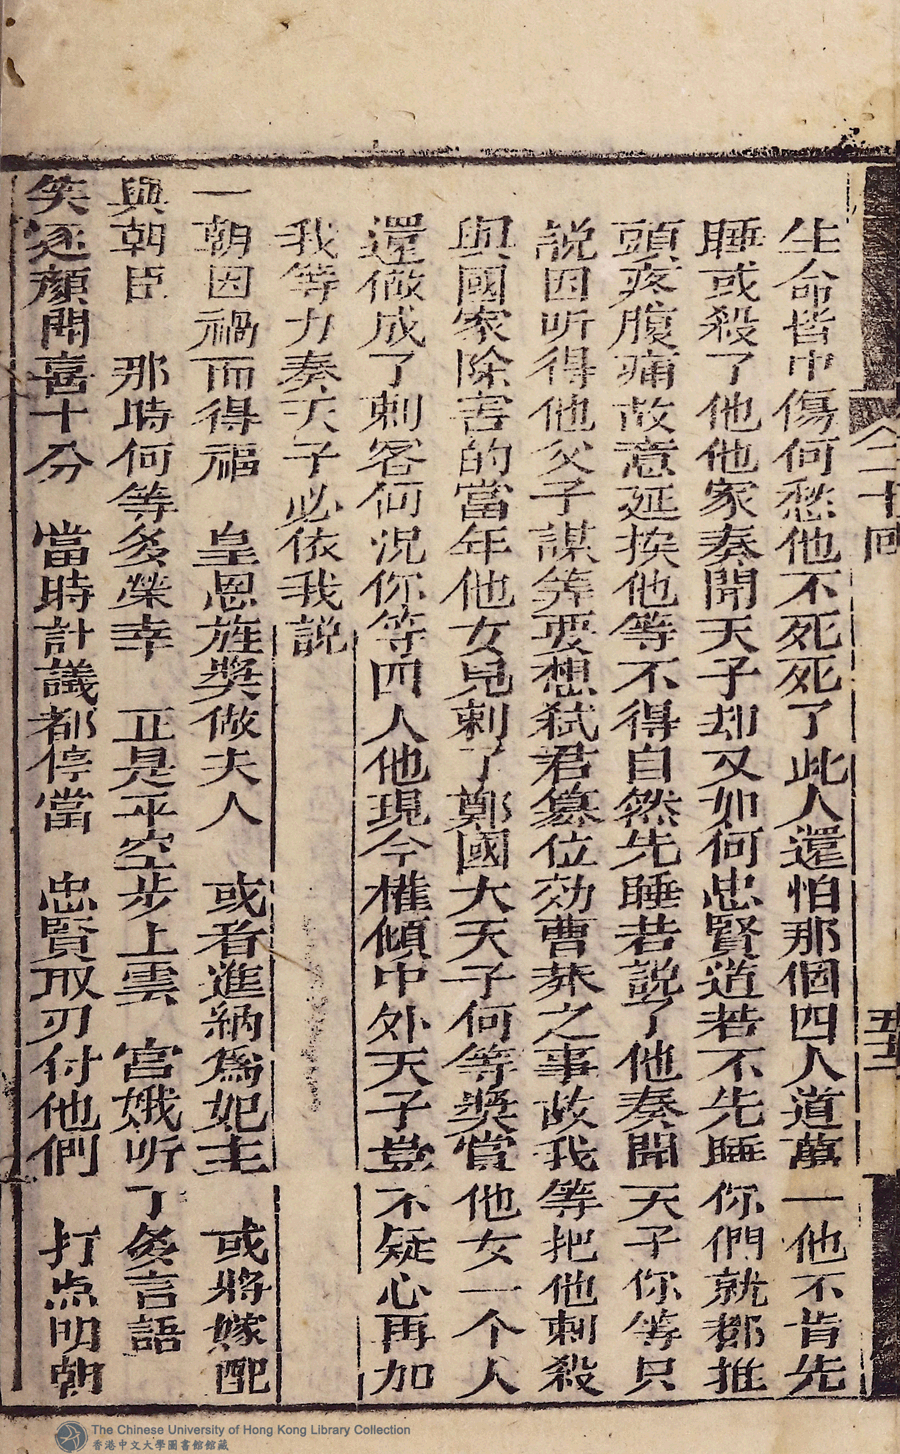 全二十回
五十二
生命皆中傷何愁他不死死了此人還怕那個四人道萬一他不肯先
睡或殺了他他家奏聞天子却又如何忠賢道若不先睡你們就都推
頭疼腹痛故意延挨他等不得自然先睡若說了他奏聞天子你等只
説因听得他父子謀筭要想弑君篡位効曹莽之事故我等把他刺殺
與國家除害的當年他女兒刺了鄭國大天子何等獎賞他女一个人
還做成了刺客何況你等四人他現今權傾中外天子豈不疑心再加
我等力奏天子必依我説
一朝因禍而得福 皇恩旌獎做夫人 或者進納爲妃主 或將嫁配
與朝臣 那時何等多榮幸 正是平空步上雲 宮娥听了多言語
笑逐顔開喜十分 當時計議都停當 忠賢取刃付他們 打点明朝
The Chinese University of Hong Kong Library Collection
香港中文大學圖書館館藏